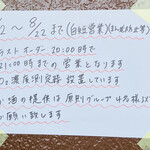 /2 〜 8/22 まで (自短営業)
ラストオーダー 20:00時で
21:00時までの営業となります
濃度測定器 設置しています
の提供は 原則グループ4名様
お願い致します